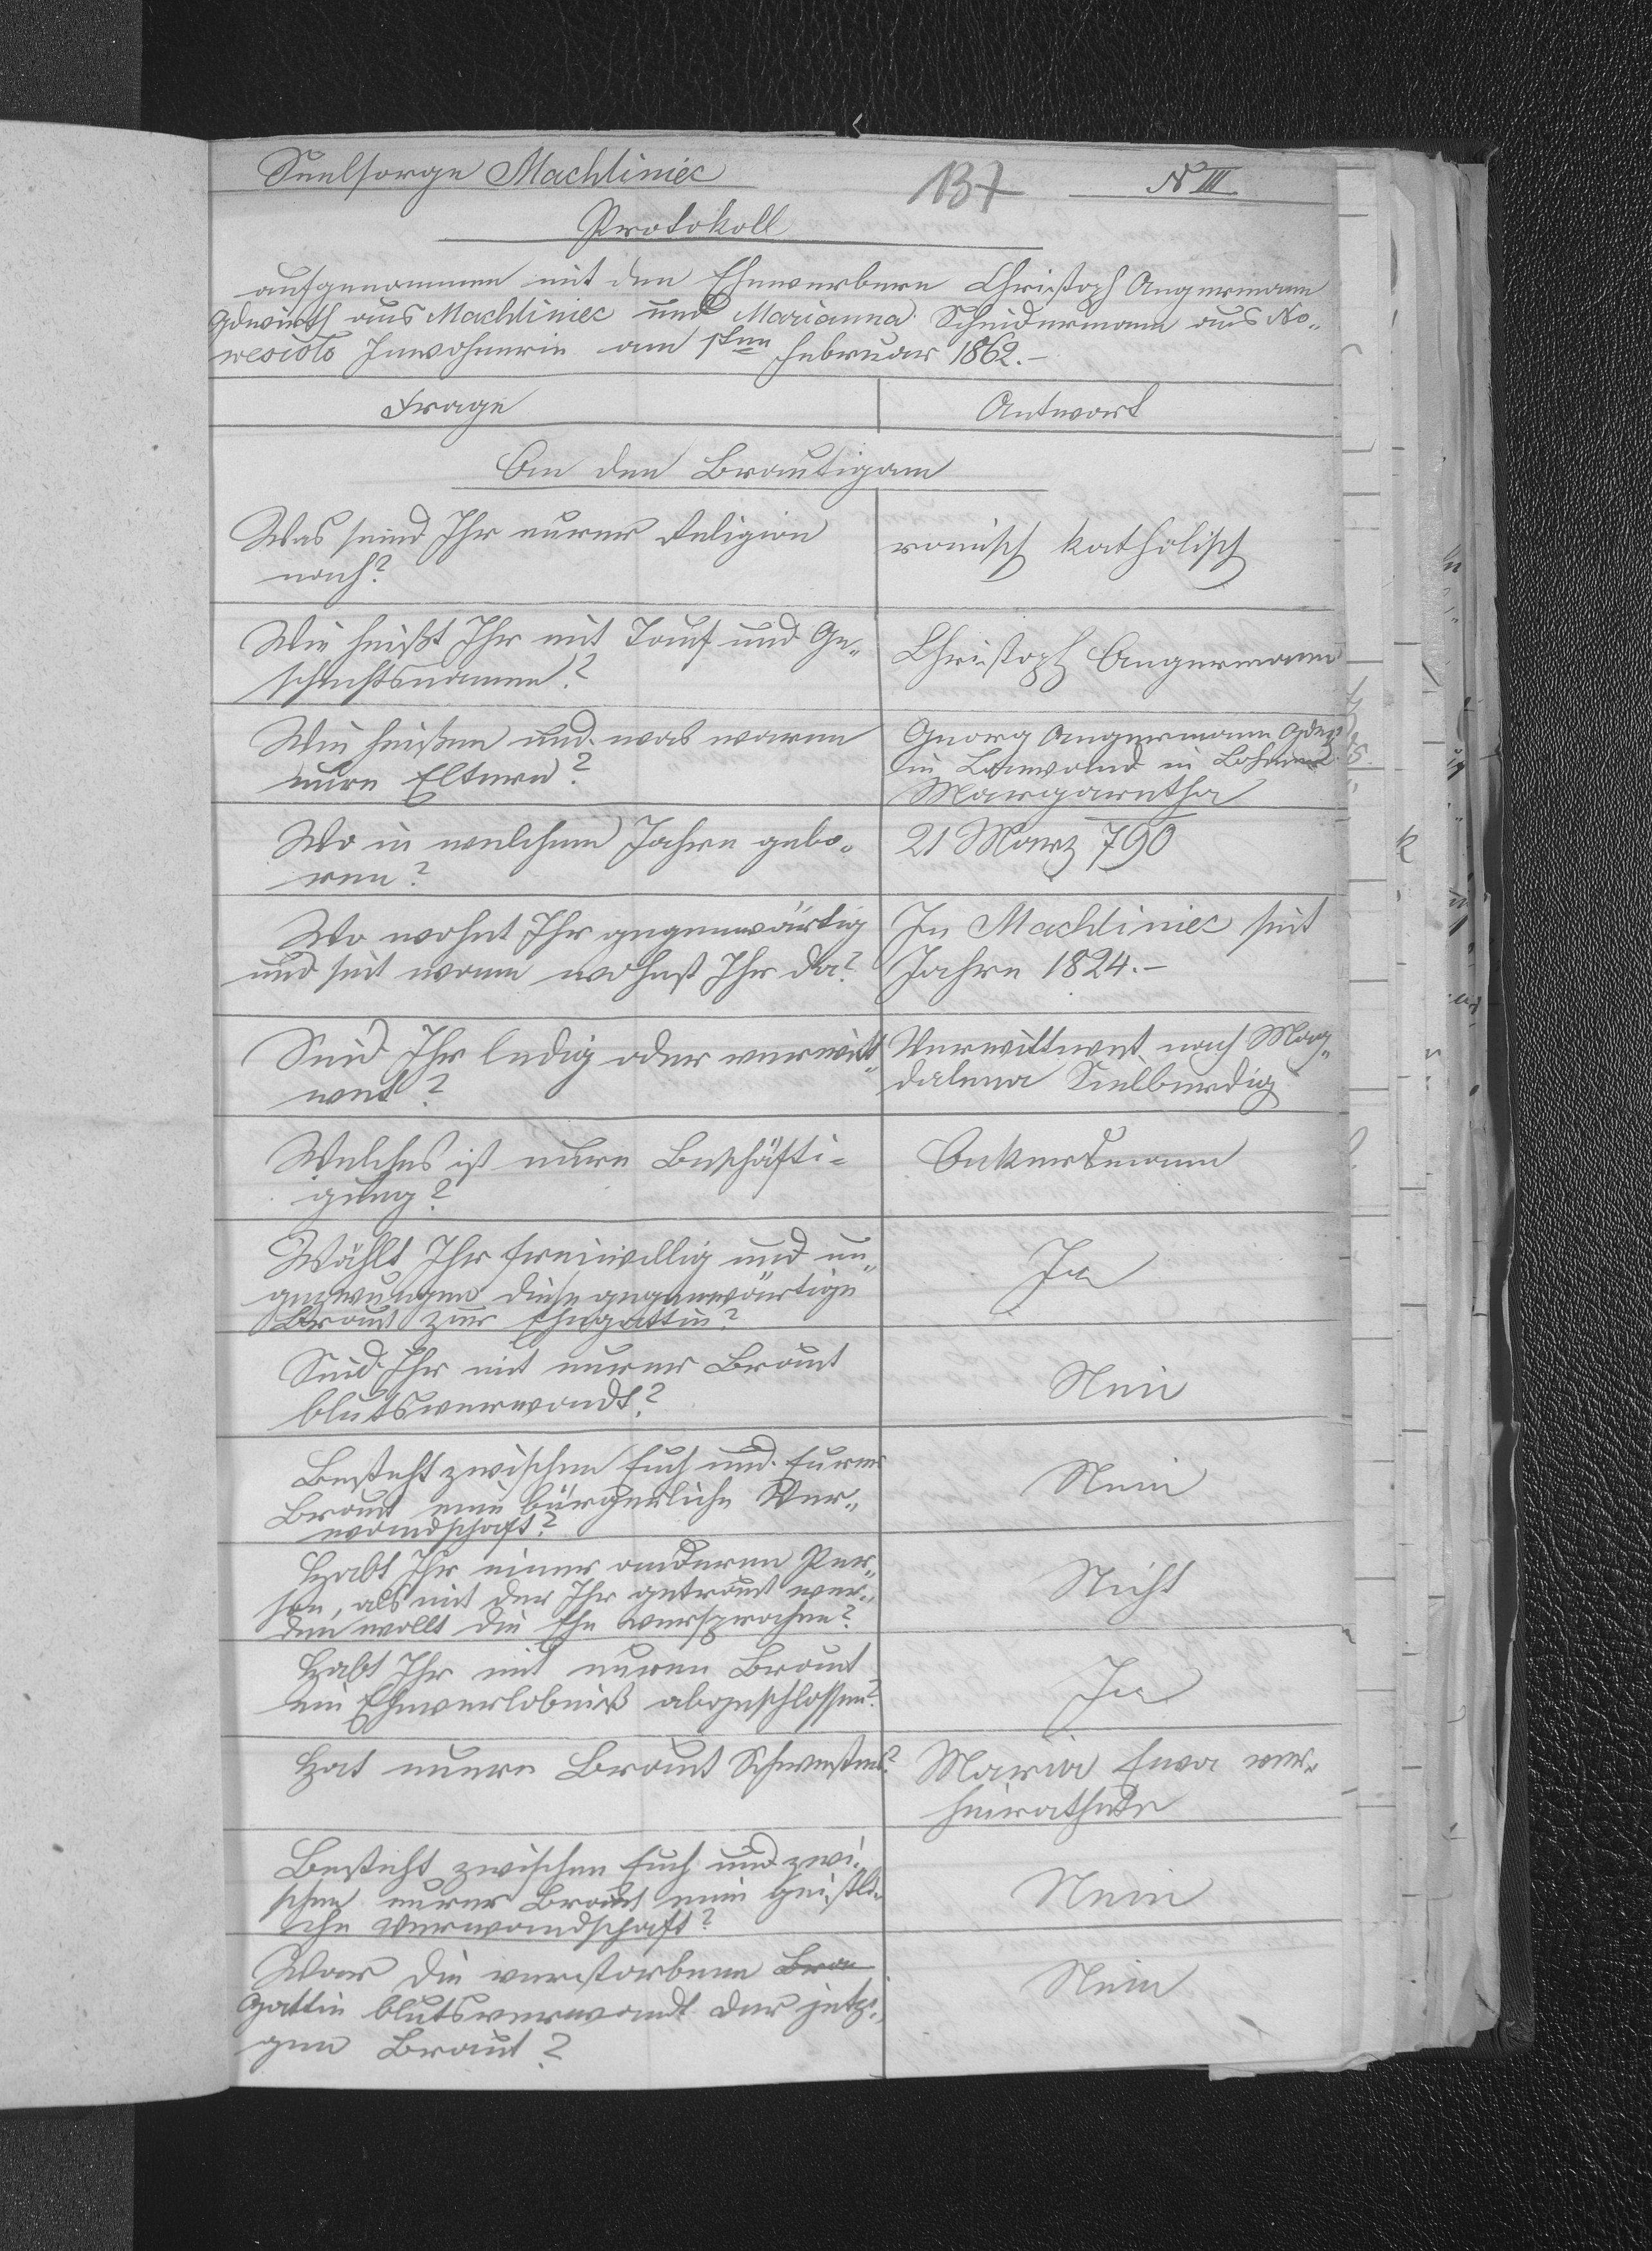 Seelsorge Machliniec
137
N III
Protokoll
aufgenommen mit den Ehewerbern Christoph Angermann
Gdwirth aus Machliniec und Marianna Scheidermann aus No„
wesioło Inwohnerin am 1ten Februar 1862.–
Frage
Antwort
An den Brautigam
Was seind Ihr eurer Religion
nach?
romisch katholisch
Wie heißt Ihr mit Tauf und Ge„
schlechtsnamen?
Christoph Angermann
Wie heißen und was waren
eure Eltern?
Georg Angermann
in in Bohmen
Margaretha
Wo in welchem Jahre gebo„
ren?
21 Marz 790
Wo wohnt Ihr gegenwärtig
und seit wann wohnst Ihr da?
In Machliniec seit
Jahre 1824.–
Seid Ihr ledig oder verwitt„
wet?
Verwittwet nach Mag„
dalena
Welches ist eure Beschäfti=
gung?
Ankersmann
Wählt Ihr freiwillig und un„
gezwungen diese gegenwärtige
Braut zur Ehegattin?
Ja
Seid Ihr mit eurer Braut
blutsverwandt?
Nein
Besteht zwischen Euch und Eurer
Braut eine bürgerliche Ver„
wandschaft?
Nein
Habt Ihr einer anderen Per„
son, als mit der Ihr getraut wer„
den wollt die Ehe versprochen?
Nicht
Habt Ihr mit euren Braut
ein Eheverlobniß abgeschlossen?
Ja
Hat euere Braut Schwestern?
Maria Ewa ver„
heirathete
Besteht zwischen Euch und zwi„
schen eurer Braut eine geistli„
che Verwandschaft?
Nein
War die verstorbene Bra
Gattin blutsverwandt der jetzi„
gen Braut?
Nein